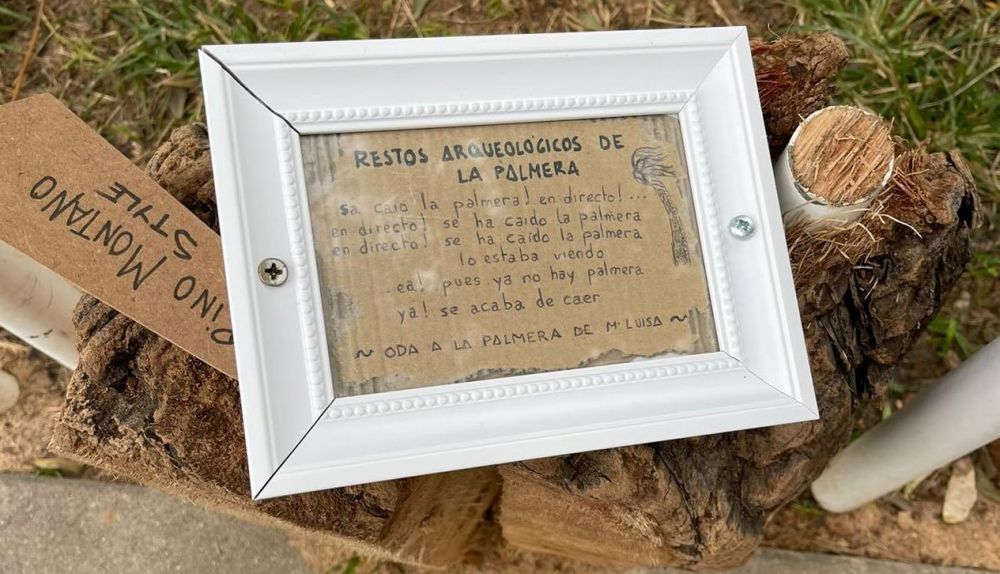 RESTOS ARQUEOLÓGICOS DE
LA PALMERA
sa caio la palmera! en directo!...
en directo! se ha caido la palmera
en directo! se ha caido la palmera
lo estaba viendo
.ea! pues ya no hay palmera
ya! se acaba de caer
~ ODA A LA PALMERA DE Mª LUISA ~
PINO MONTANO
STYLE